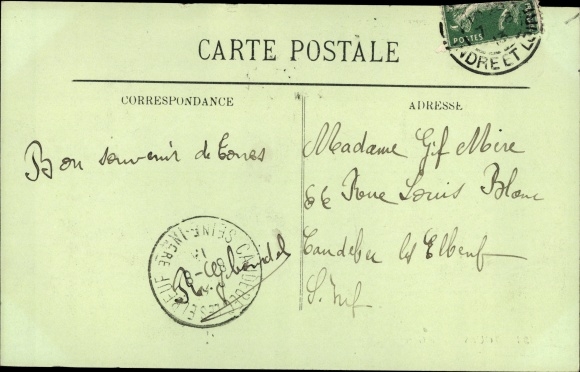 CARTE POSTALE
POSTES
INDRE ET L
CORRESPONDANCE
ADRESSE
Bon souvenir de Tours
Madame Gif Mère
66 Rue Louis Blanc
Caudebec les Elbeuf
S. Inf
CAUDEBEC-LES-ELBEUF
SEINE-INFRE